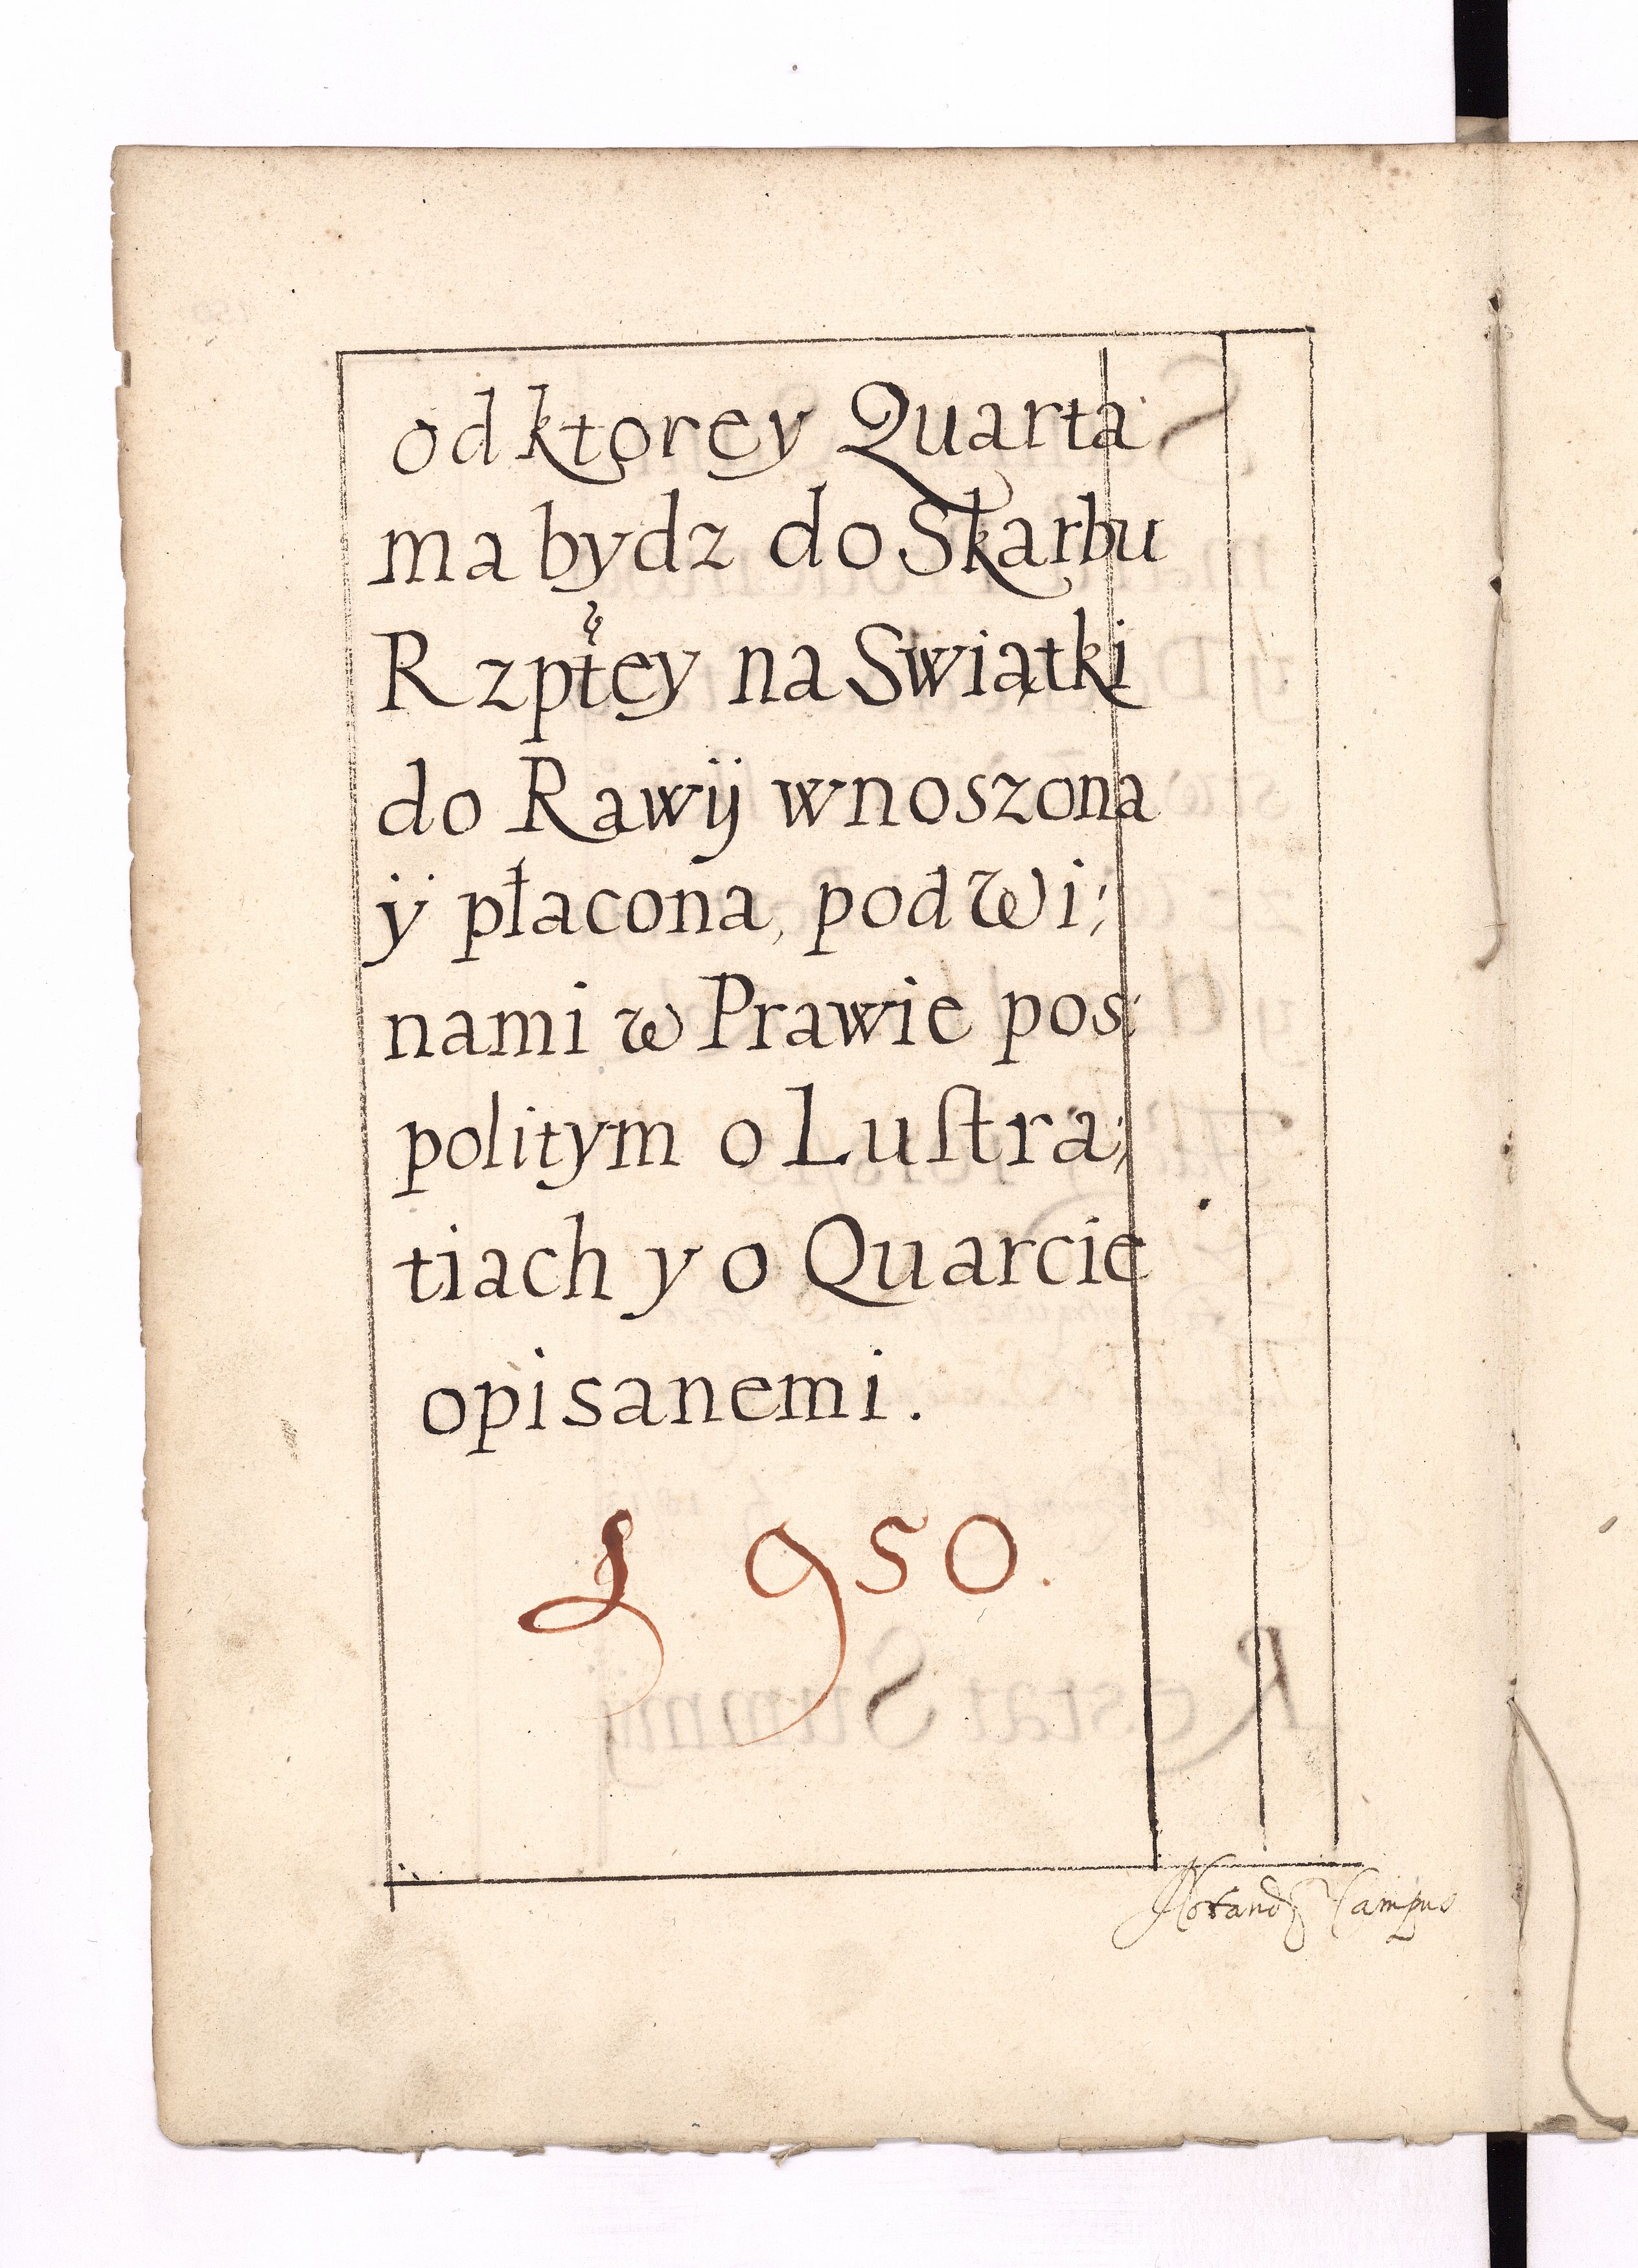 od ktorey Quarta
ma bydz do Skarbu
Rzpłey na Swiątki
do Rawÿ wnoszona
ÿ płacona, pod Wi;
nami w Prawie pos:
politym o Luſtra;
tiach y o Quarcie
opisanemi.
950.
Campus